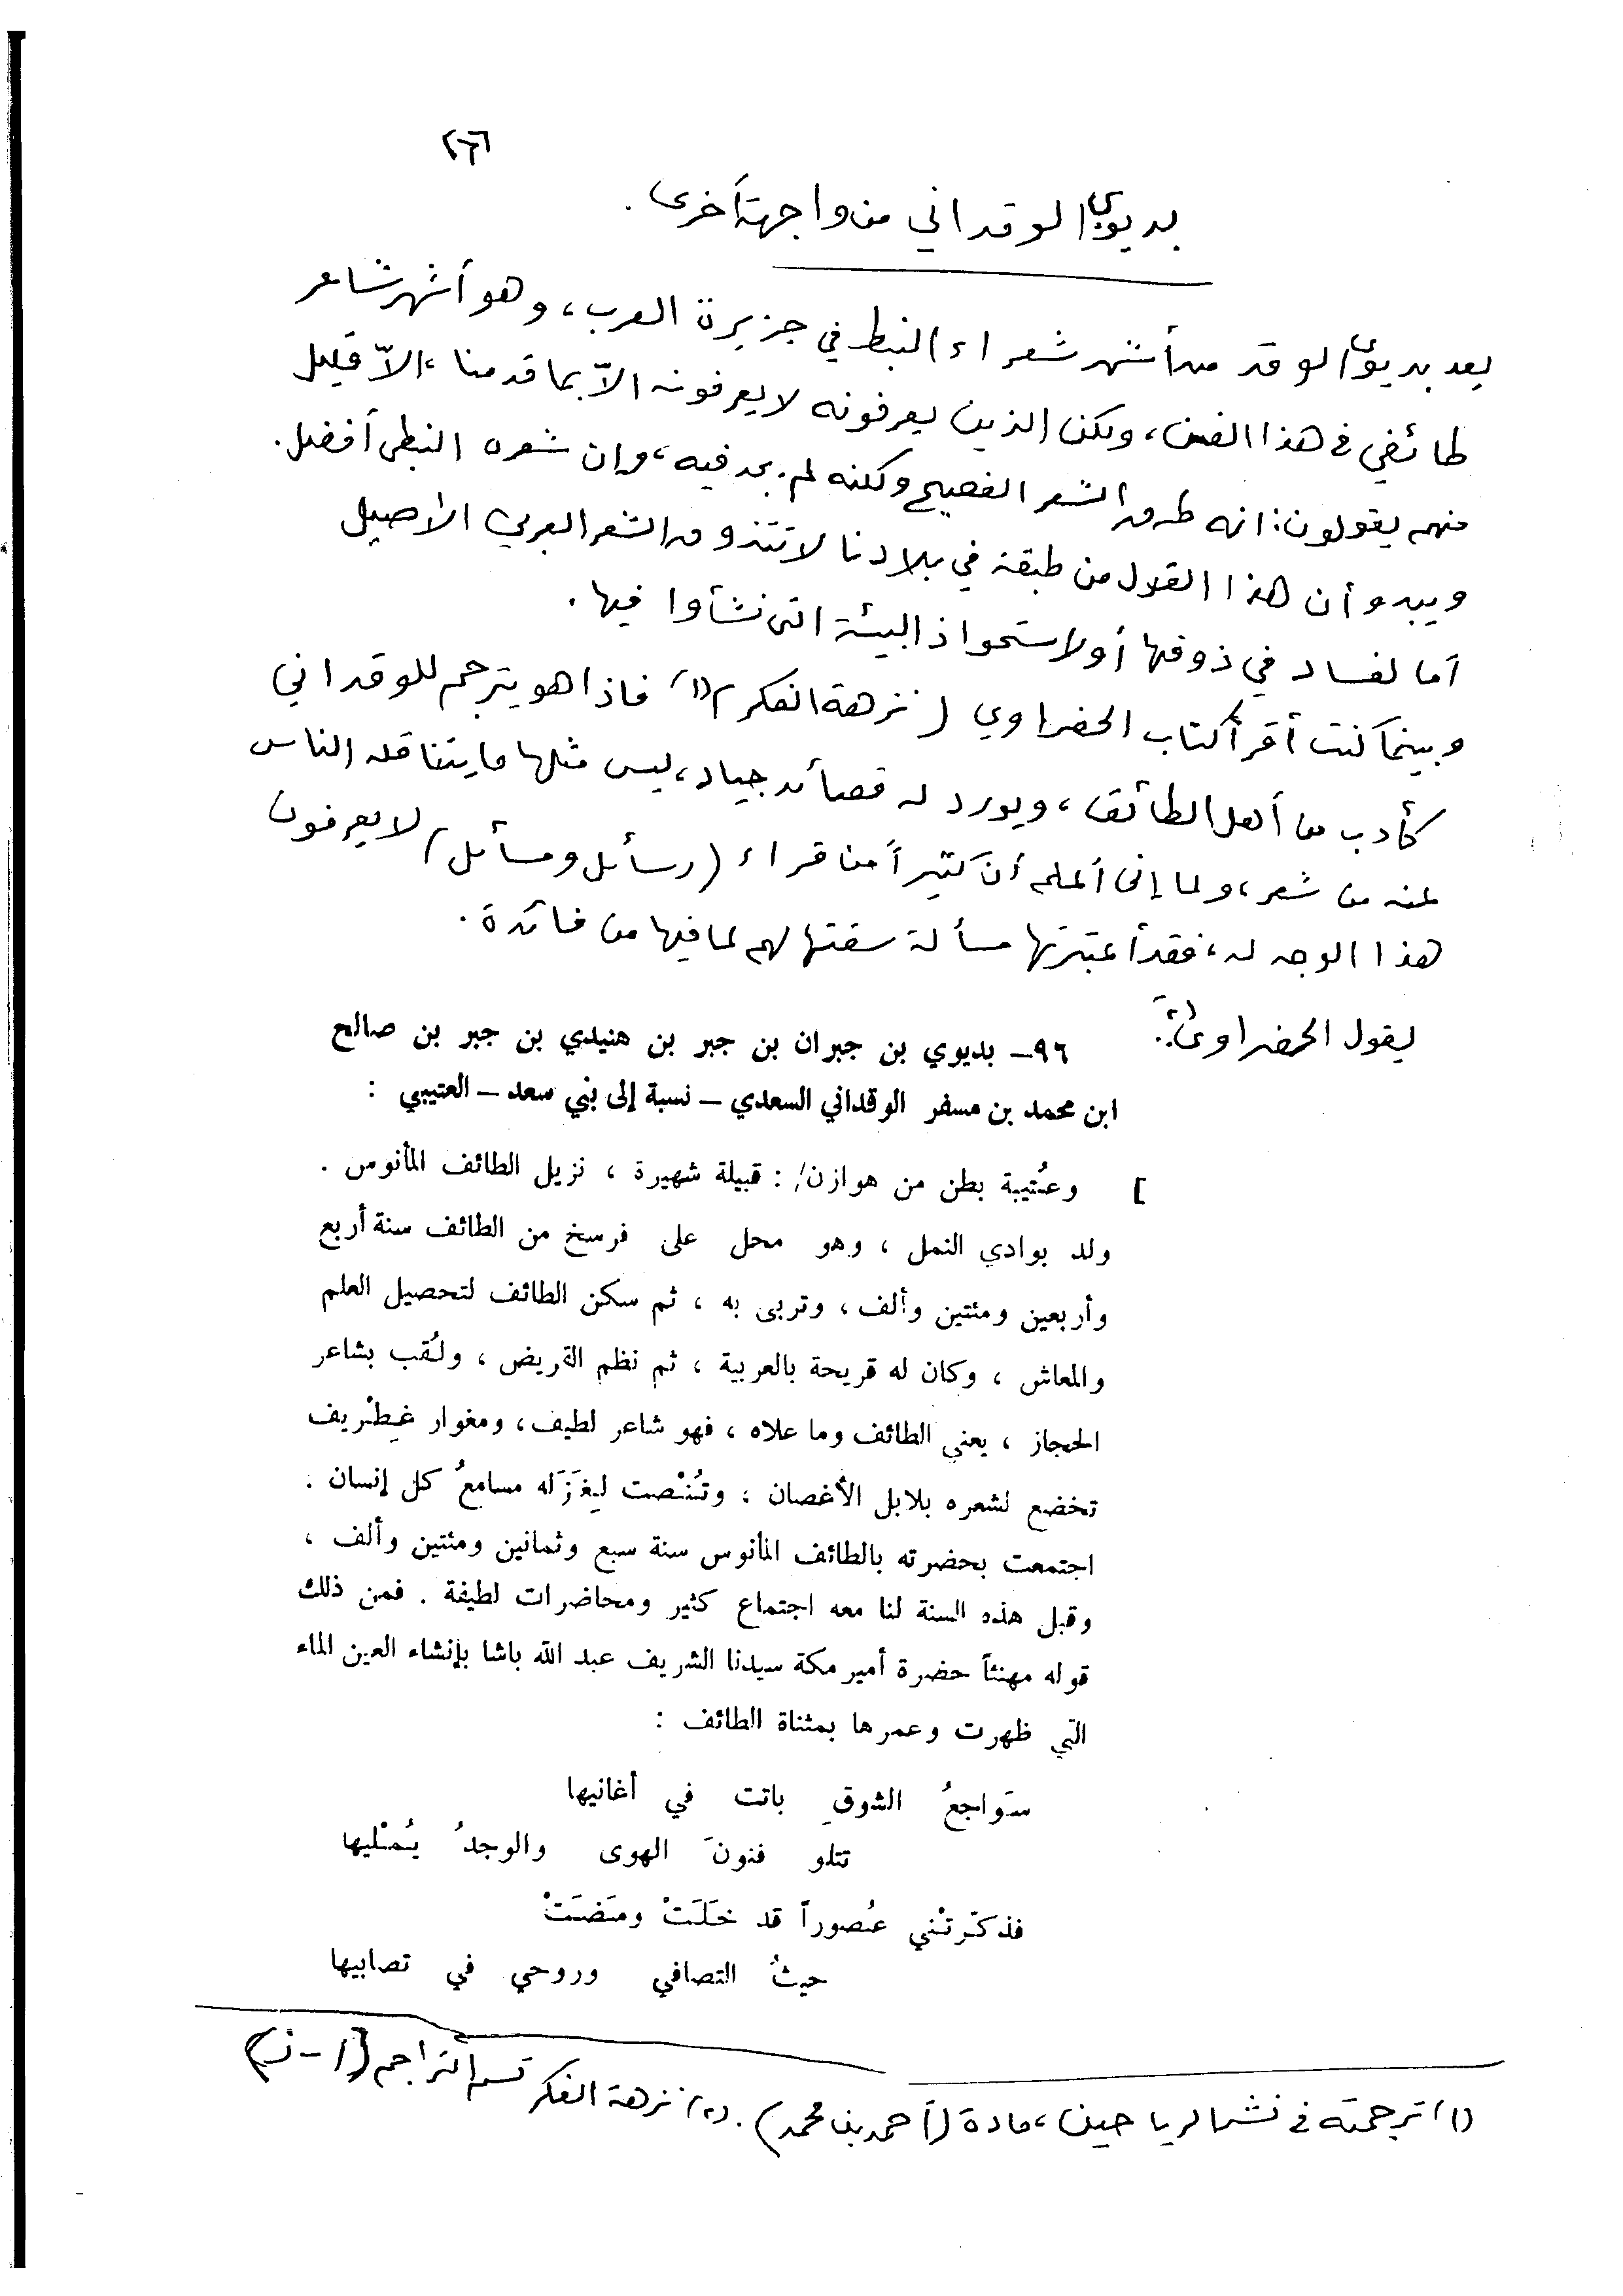 ٢٦٦
بديوي الوقداني من واجهة أخرى .
يعد بديوي الوقد من أشهر شعراء النبط في جزيرة العرب، وهو أشهر شاعر
طائفي في هذا الفن، ولكن الذين يعرفونه لا يعرفونه الاّ بما قدمنا، الاّ قليل
منهم يقولون: انه طرق الشعر الفصيح ولكنه لم يجد فيه، وان شعره النبطي أفضل.
ويبدو أن هذا القول من طبقة في بلادنا لا تتذوق الشعر العربي الأصيل
أما لفساد في ذوقها أو لاستحواذ البيئة التي نشأوا فيها .
وبينما كنت أقرأ كتاب الحضراوي (نزهة الفكر)(١) فاذا هو يترجم للوقداني
كأديب من أهل الطائف، ويورد له قصائد جياد، ليس مثلها ما يتناقله الناس
عنه من شعر، ولما إني أعلم أن كثيراً من قراء (رسائل ومسائل) لا يعرفون
هذا الوجه له، فقد أعتبرتها مسألة سقتها لهم لما فيها من فائدة .
يقول الحضراوي(٢):
٩٦– بديوي بن جبران بن جبر بن هنيدي بن جبر بن صالح
ابن محمد بن مسفر الوقداني السعدي – نسبة إلى بني سعد – العتيبي :
[ وعُتيبة بطن من هوازن : قبيلة شهيرة ، نزيل الطائف المأنوس .
ولد بوادي النمل ، وهو محل على فرسخ من الطائف سنة أربع
وأربعين ومئتين وألف ، وتربى به ، ثم سكن الطائف لتحصيل العلم
والمعاش ، وكان له قريحة بالعربية ، ثم نظم القريض ، ولُقب بشاعر
الحجاز ، يعني الطائف وما علاه ، فهو شاعر لطيف ، ومغوار غِطْريف
تخضع لشعره بلابل الأغصان ، وتُنْصت لِغَزَله مسامعُ كل إنسان .
اجتمعت بحضرته بالطائف المأنوس سنة سبع وثمانين ومئتين وألف ،
وقبل هذه السنة لنا معه اجتماع كثير ومحاضرات لطيفة . فمن ذلك
قوله مهنئاً حضرة أمير مكة سيدنا الشريف عبد الله باشا بإنشاء العين الماء
التي ظهرت وعمرها بمثناة الطائف :
سَواجعُ الشوقِ باتت في أغانيها
تتلو فنونَ الهوى والوجدُ يُمْليها
فذكّرتْني عُصوراً قد خَلَتْ ومَضَتْ
حيثُ التصافي وروحي في تصابيها
(١) ترجمته في نشر الرياحين، مادة (أحمد بن محمد). (٢) نزهة الفكر قسم التراجم (أ-ن)